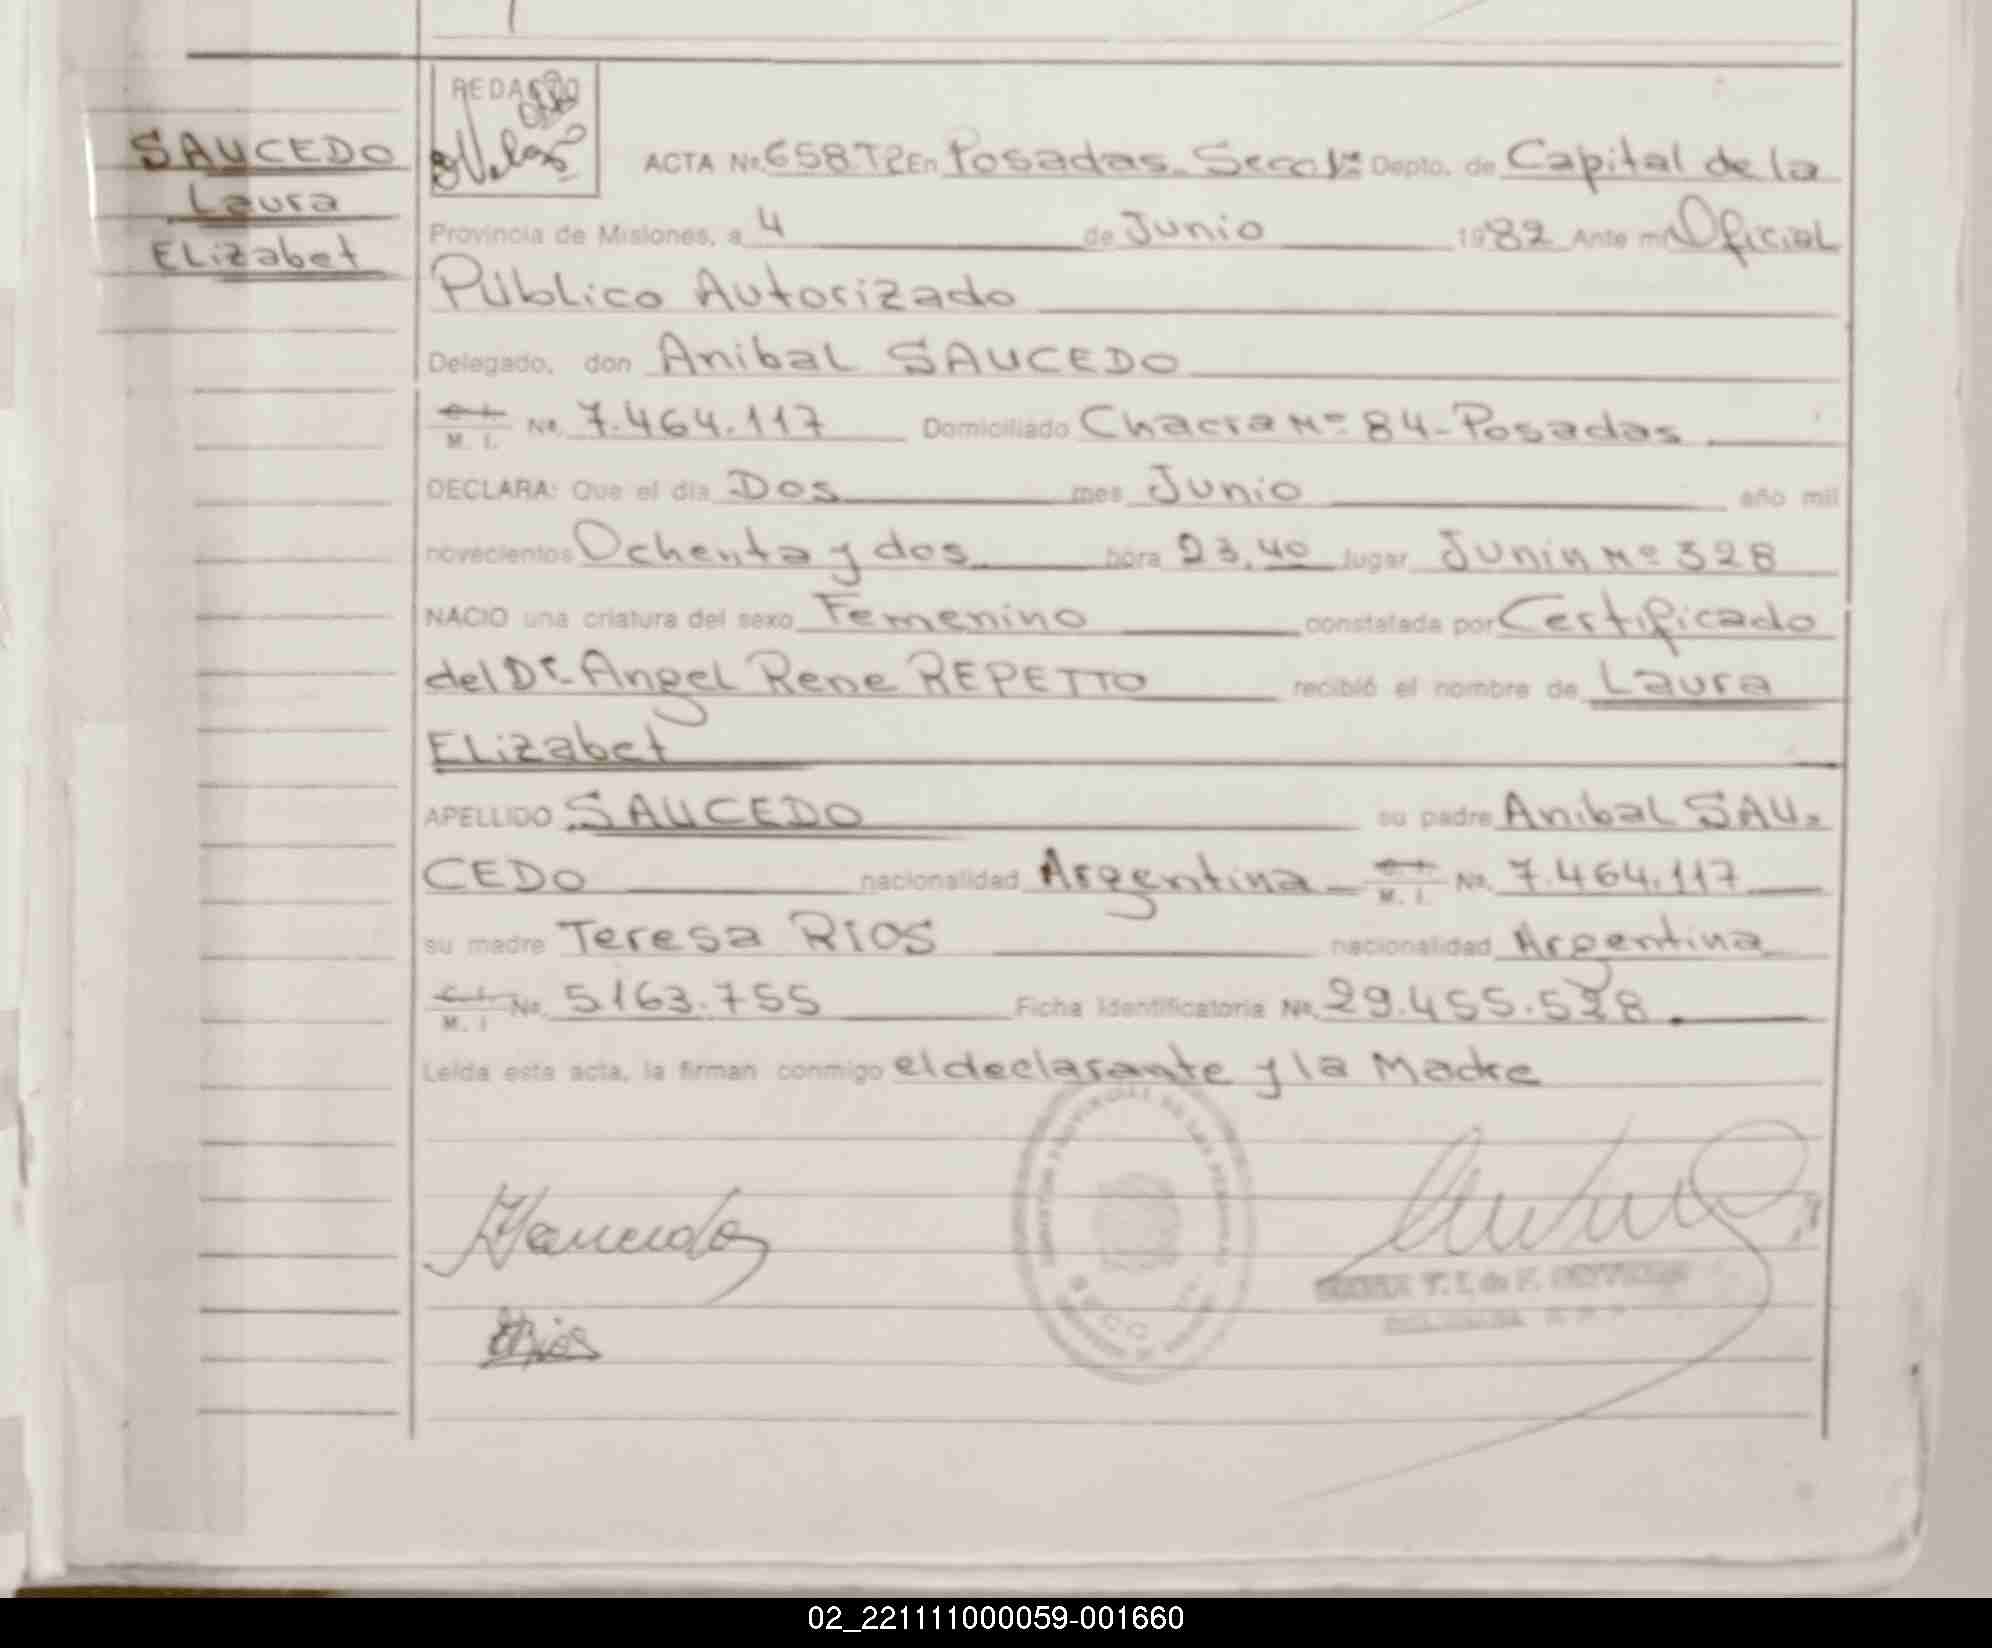 SAUCEDO
Laura
ELizabet
REDACTO
ACTA No. 658.T2 En Posadas. Secc 1ra Depto. de Capital de la
Provincia de Misiones, a 4 de Junio 1982 Ante mi Oficial
Público Autorizado
Delegado, don Anibal SAUCEDO
C.I. M. I. No. 7.464.117 Domiciliado Chacra Nº 84-Posadas
DECLARA: Que el día Dos mes Junio año mil
novecientos Ochenta y dos hora 23,40 lugar Junin Nº 328
NACIO una criatura del sexo Femenino constatada por Certificado
del Dr. Angel Rene REPETTO recibió el nombre de Laura
ELizabet
APELLIDO SAUCEDO su padre Anibal SAU=
CEDO nacionalidad Argentina C.I. M. I. No. 7.464.117
su madre Teresa RIOS nacionalidad Argentina
C.I. M. I No. 5.163.755 Ficha Identificatoria No. 29.455.528.
Leída esta acta, la firman conmigo el declarante y la Madre
02_221111000059-001660